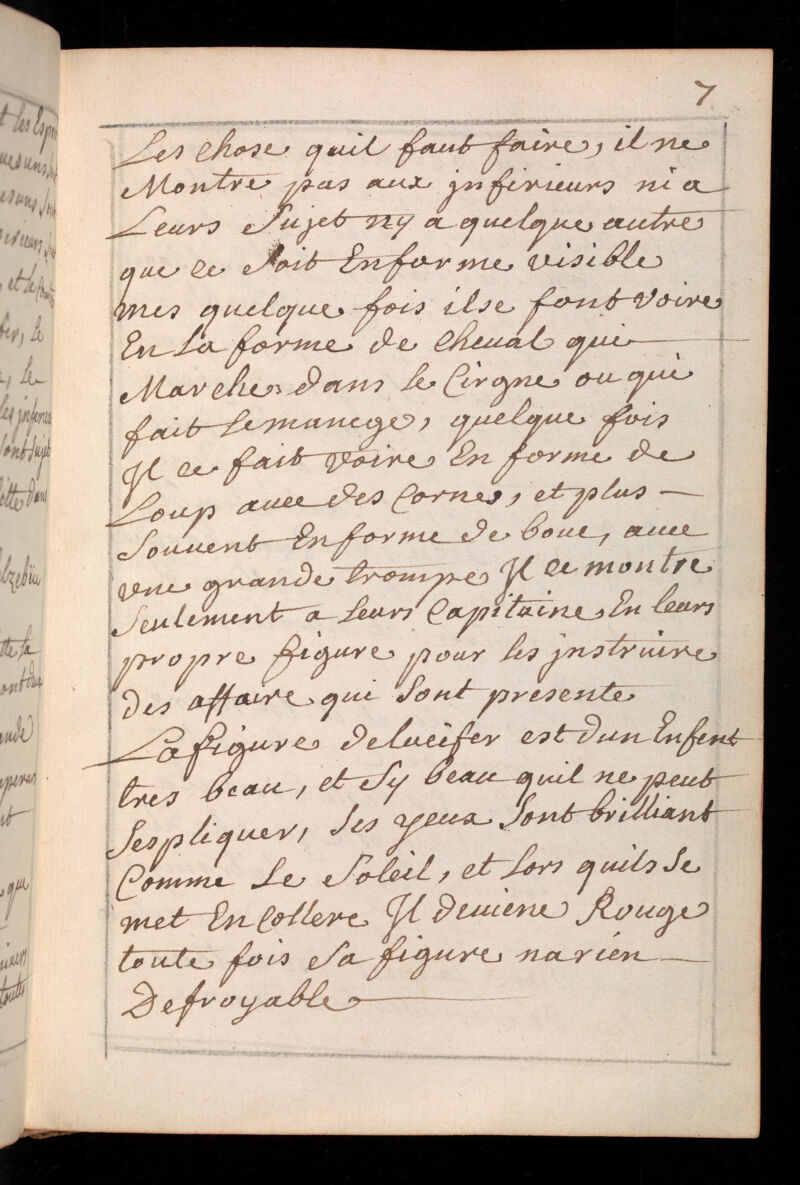 7
Les chose quil faut faire, il ne
Montre pas aux jnferieurs ni a
Leurs Sujet ny a quelque autre
que ce Soit Enforme visible
mes quelque fois ilse font voire
En La forme de cheval qui
Marche dans le Cirgne ou qui
fait Lemanege, quelque fois
Jl ce fait voire En forme de
Loup avec des Cornes, et plus
Souvent Enforme de bouc, avec
vne grande trompe Jl ce montre
Seulement a Leurs Capitaine, En leurs
propre figure pour les jnstruire
des affaire qui Sont presente
La figure delucifer est dun Enfent
tres beau, et Sy beau quil ne peut
Sespliquer, Ses yeux Sont brilliant
Comme Le Soleil, et Lors quils Se
met En Collere Jl deviene Rouge
toute fois Sa figure narien
Defroyable